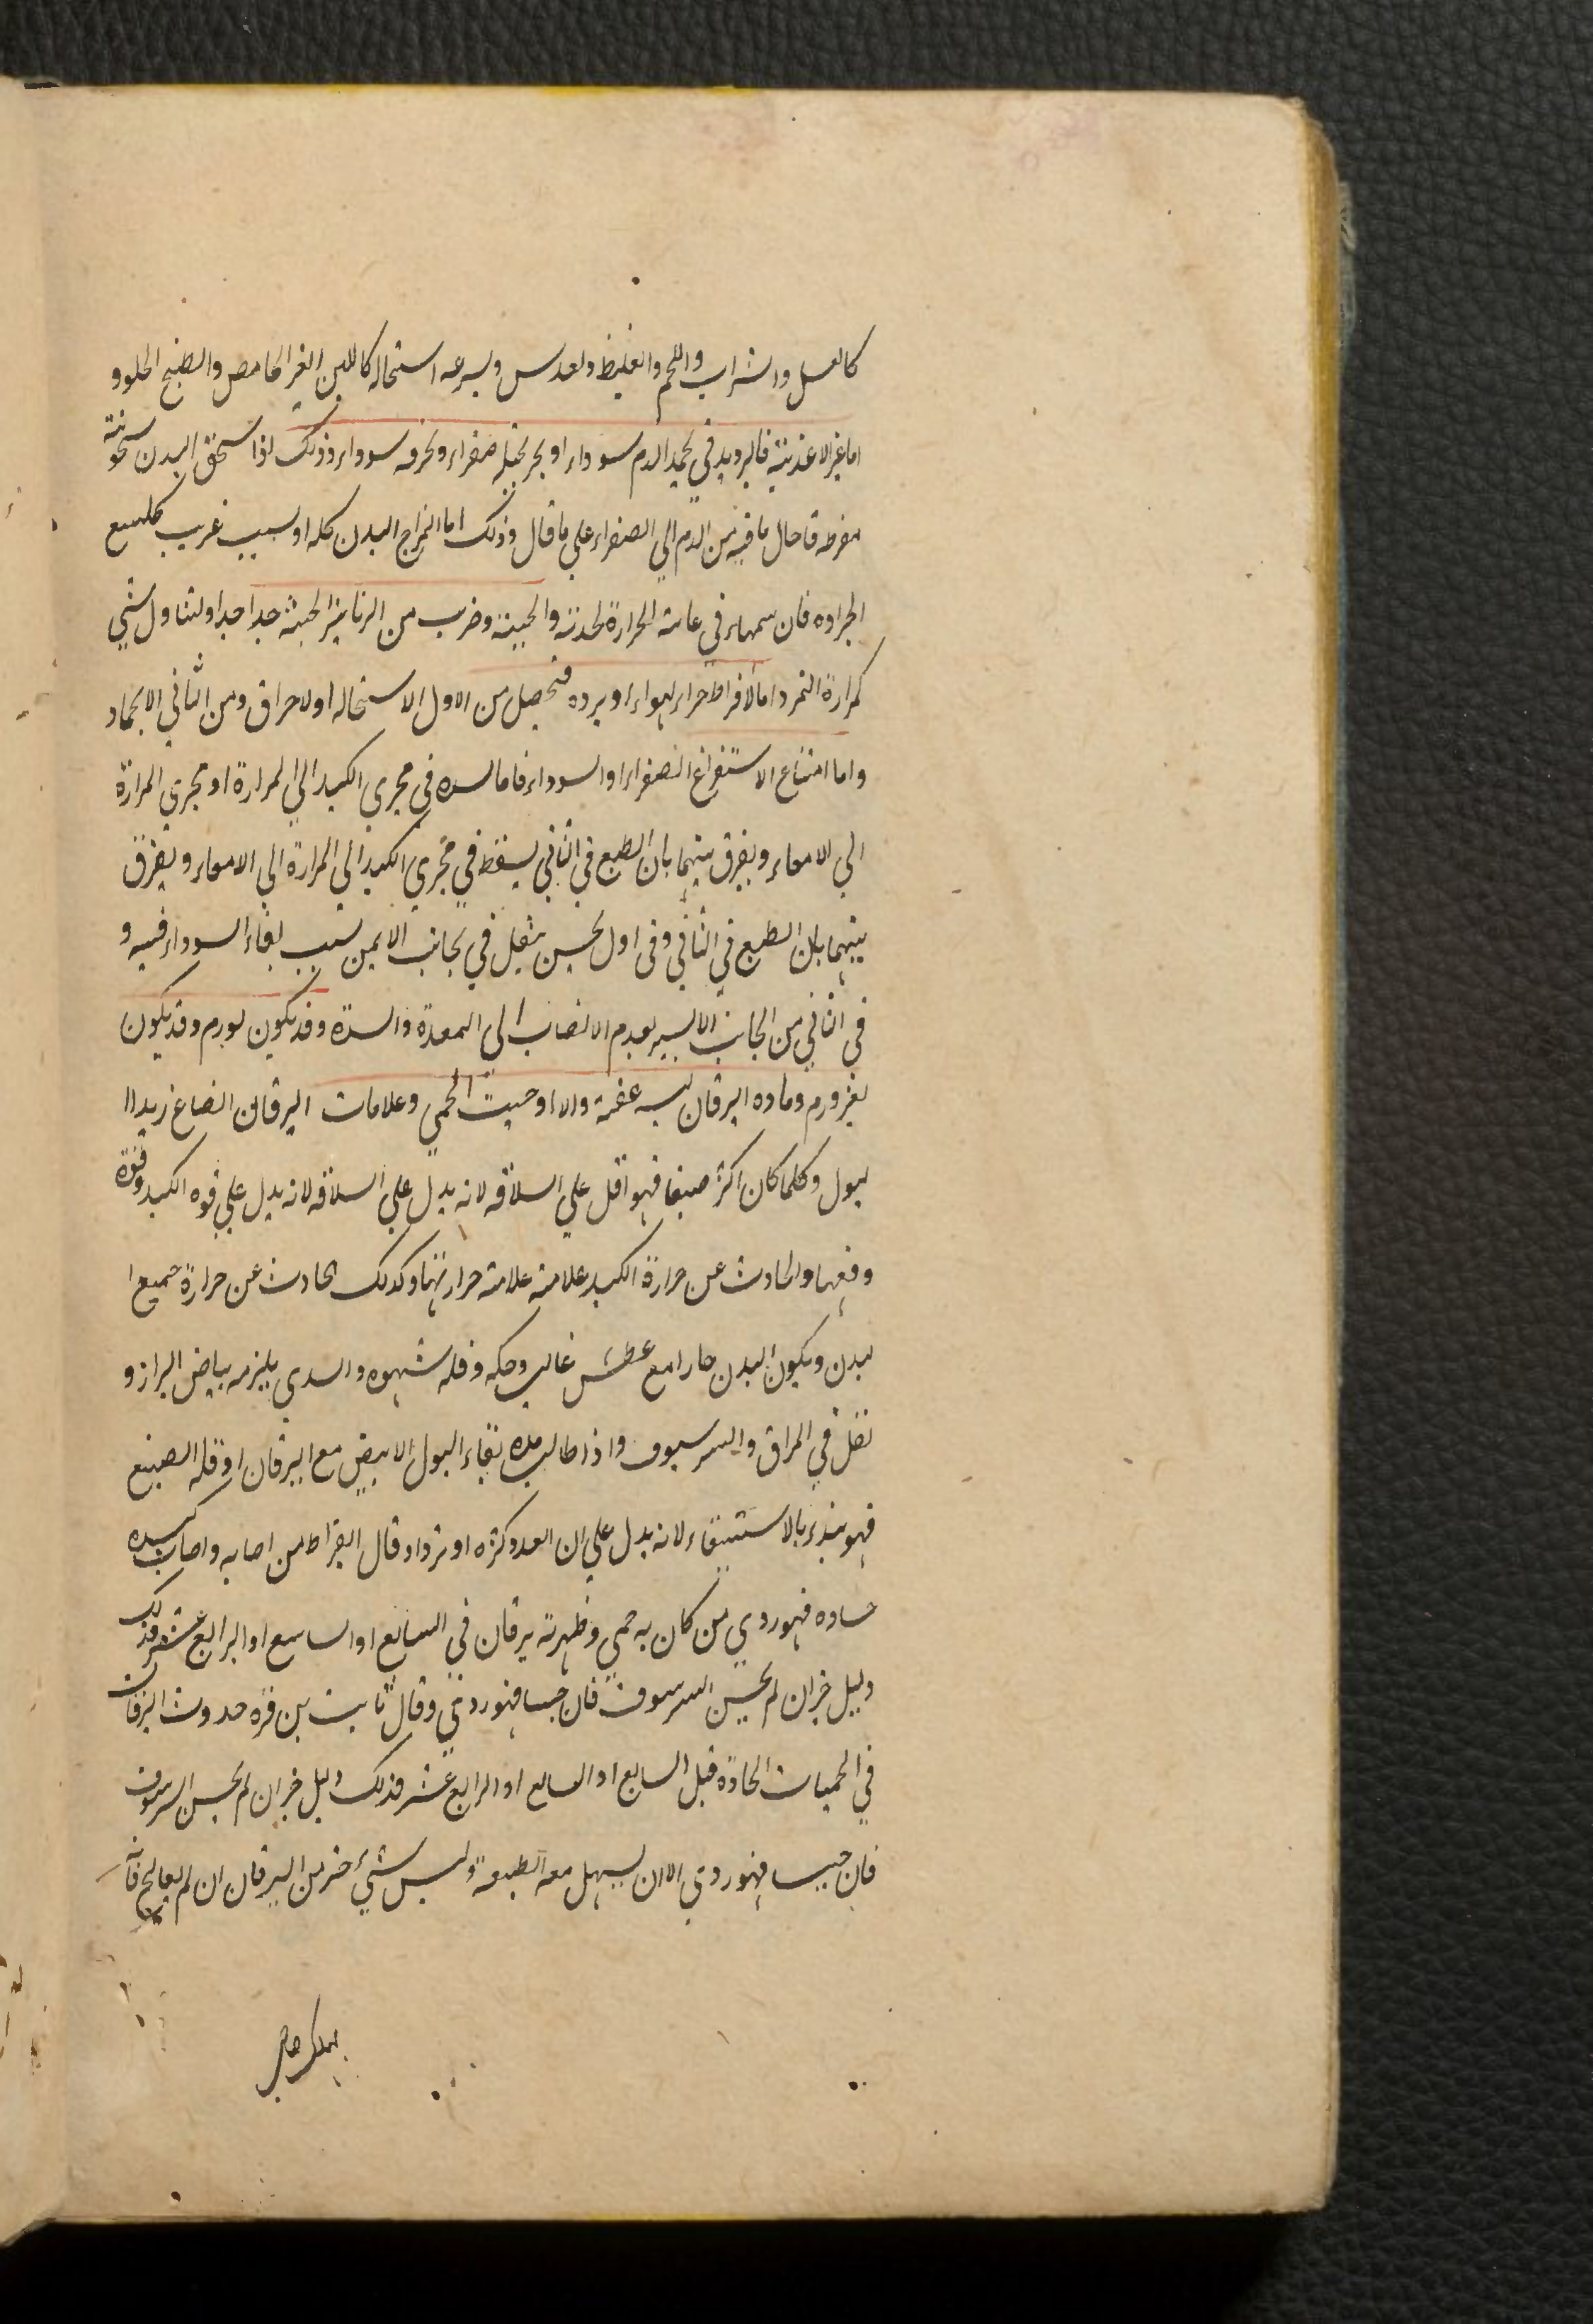 كالعسل والشراب واللحم والغليظ والعدس وبسرعه استحاله كاللبن الغير الحامض والطبخ الحلو و
اما غير الاغذية فالبرد يدفي لحمد الدم سوداء او بحر يحيله صفراء ويحرقه سوداء وذلك اذا سخن البدن سخونة
مفرطه فاحال ما فيه من الدم الي الصفراء علي ما قال وذلك اما المزاج البدن كله او سبب غريب كلسع
الجراده فان سمها في غاية الحرارة لحدته والحيية وضرب من الرتايثر الخبثة جدا جدا ولتناول شي
كمرارة النمر واما لافراط حراء لهواء او برده فيحصل من الاول الاستحاله او لاحراق ومن الثاني الانجماد
واما امتناع الاستفراغ الصفراء او السوداء فاما لسده في مجري الكبد الي المرارة او مجري المرارة
الي الامعاء ويفرق بينهما بان الطبع في الثاني يسقط في مجري الكبد الي المرارة الي الامعاء ويفرق
بينهما بان الطبع في الثاني وفي اول يحس بثقل في بجانب الايمن بسبب بقاء السوداء فيه و
في الثاني من الجانب الايسر لعدم الانصاب الي المعدة والسدة وقد يكون لورم وقد يكون
لغير ورم وماده اليرقان ليسه عفنة والا اوجبت الحمي وعلامات اليرقان انصباغ زبد ا
لبول وكلما كان اكثر صبغا فهو اقل علي السلاقه لانه يدل علي السلاقه لانه يدل علي قوه الكبد وقوة
وفعها والحادث عن حرارة الكبد علامته علامة حرارتها وكذلك الحادث عن حرارة جميع ا
لبدن ويكون البدن حارا مع عطش غالب وحكه وقله شهوه والسدي يلزمه بياض البراز و
ثقل في المراق والسرسوف واذا طالت مده بقاء البول الابيض مع اليرقان او قله الصبغ
فهو ينذر بالاستسقاء لانه يدل علي ان العدو كثره او تزداد قال البقراط من اصابه واصاب كبده
حساوه فهو ردي من كان به حمي وظهرته يرقان في السابع او التاسع او الرابع عشر فذلك
دليل خير ان لم يحبس السرسوف فان حبسا فهو ردئي وقال ثابت بن قره حدوث اليرقان
في الحميات الحادة قبل السابع او التاسع او الرابع عشر فذلك دليل خير ان لم يحبس السرسوف
فان حبسا فهو ردي الا ان يسهل معه الطبيعة وليس شيئ اضر من اليرقان ان لم يعالج فانه